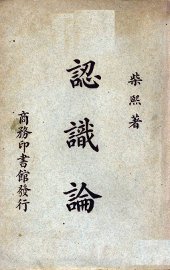 柴熙著
認識論
商務印書館發行